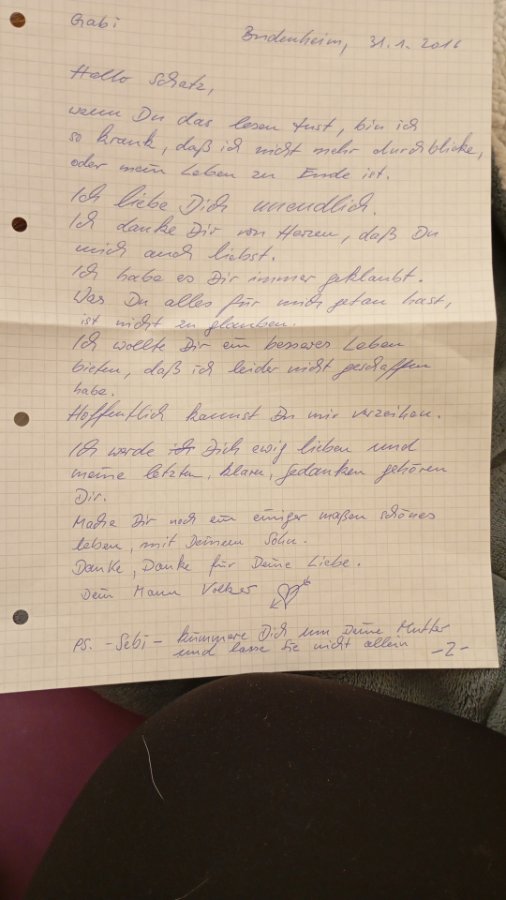 Gabi
Budenheim, 31.1.2016
Hallo Schatz,
wenn Du das lesen tust, bin ich
so krank, daß ich nicht mehr durchblicke,
oder mein Leben zu Ende ist.
Ich liebe Dich unendlich.
Ich danke Dir von Herzen, daß Du
mich auch liebst.
Ich habe es Dir immer geklaubt.
Was Du alles für mich getan hast,
ist nicht zu glauben.
Ich wollte Dir ein besseres Leben
bieten, daß ich leider nicht geschaffen
habe.
Hoffentlich kannst Du mir verzeihen.
Ich werde Dich ewig lieben und
meine letzten, klaren, Gedanken gehören
Dir.
Mache Dir noch ein einiger maßen schönes
Leben, mit Deinem Sohn.
Danke, Danke für Deine Liebe.
Dein Mann Volker
PS. - Sebi - kümmere Dich um Deine Mutter
und lasse Sie nicht allein
-2-